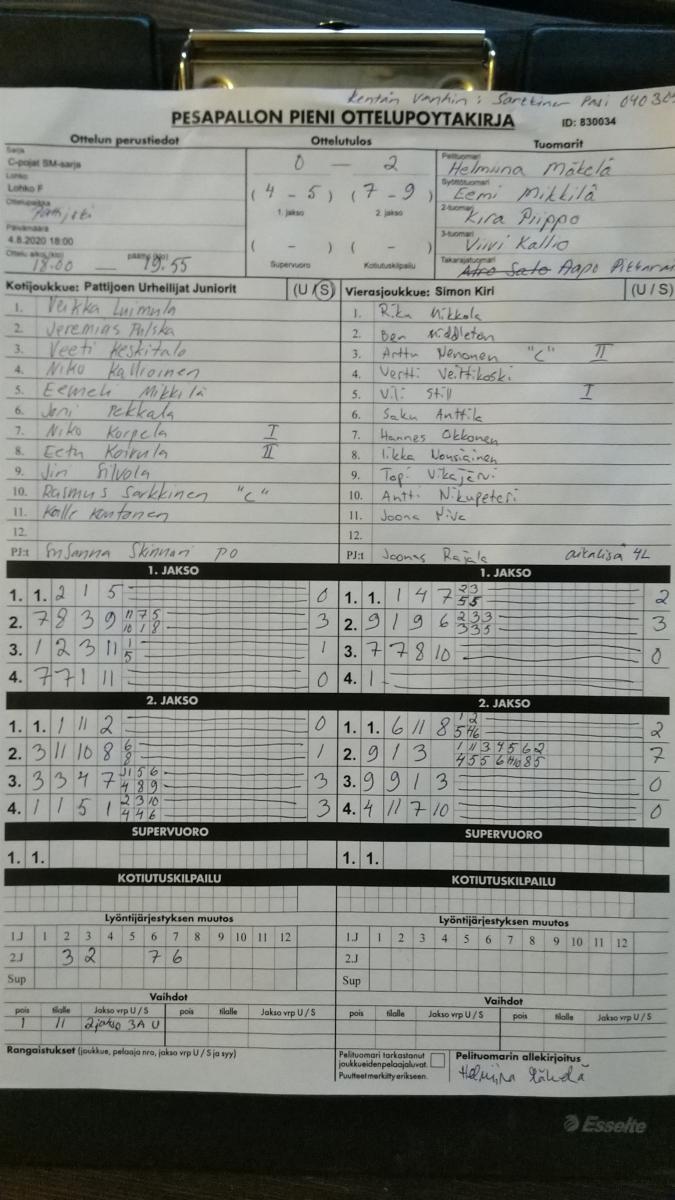 Kentän vanhin: Sarkkinen Pasi 040 305
PESAPALLON PIENI OTTELUPOYTAKIRJA ID: 830034
Ottelun perustiedot Ottelutulos Tuomarit
Sarja
C-pojat SM-sarja
Lohko
Lohko F
Ottelupaikka
Pattijoki
Päivämäärä
4.8.2020 18:00
Ottelu alkoi (klo) päättyi (klo)
18.00 — 19.55
0 — 2
(4 - 5) (7 - 9)
1. jakso 2. jakso
( - ) ( - )
Supervuoro Kotiutuskilpailu
Pelituomari
Helmiina Mäkelä
Syöttötuomari
Eemi Mikkilä
2-tuomari
Kira Piippo
3-tuomari
Viivi Kallio
Takarajatuomari
Aapo
Kotijoukkue: Pattijoen Urheilijat Juniorit (U / S)
1. Veikka Luimula
2. Jeremias Palska
3. Veeti Keskitalo
4. Niko Kallioinen
5. Eemeli Mikkilä
6. Joni Pekkala
7. Niko Korpela I
8. Eetu Koivula II
9. Jiri Silvola
10. Rasmus Sarkkinen "C"
11. Kalle Kontonen
12.
PJ:t Susanna Skinnari PO
Vierasjoukkue: Simon Kiri (U / S)
1. Riku Nikkola
2. Ben Middleton
3. Arttu Nenonen "C" II
4. Vertti Veittikoski
5. Vili Still I
6. Saku Anttila
7. Hannes Okkonen
8. Iikka Nousiainen
9. Topi Vikajärvi
10. Antti Nikupeteri
11. Joona
12.
PJ:t Joonas Rajala aikalisä 4L
1. JAKSO
1. 1. 2 1 5 0
2. 7 8 3 9 11 7 5 3
10 1 8
3. 1 2 3 11 1 1
5
4. 7 7 1 11 0
1. JAKSO
1. 1. 1 4 7 2 3 2
5 5
2. 9 1 9 6 2 3 3 3
3 3 5
3. 7 7 8 10 0
4. 1
2. JAKSO
1. 1. 1 11 2 0
2. 3 11 10 8 6 1
8
3. 3 3 4 7 11 5 6 3
4 8 9
4. 1 1 5 1 2 3 10 3
4 4 6
2. JAKSO
1. 1. 6 11 8 1 2 2
5 46
2. 9 1 3 1 11 3 4 5 6 2 7
4 5 5 6 11 10 8 5
3. 9 9 1 3 0
4. 4 11 7 10 0
SUPERVUORO SUPERVUORO
1. 1. 1. 1.
KOTIUTUSKILPAILU KOTIUTUSKILPAILU
Lyöntijärjestyksen muutos
1.J 1 2 3 4 5 6 7 8 9 10 11 12
2.J 3 2 7 6
Sup
Lyöntijärjestyksen muutos
1.J 1 2 3 4 5 6 7 8 9 10 11 12
2.J
Sup
Vaihdot
pois tilalle Jakso vrp U / S pois tilalle Jakso vrp U / S
1 11 2jakso 3A U
Vaihdot
pois tilalle Jakso vrp U / S pois tilalle Jakso vrp U / S
Rangaistukset (joukkue, pelaaja nro, jakso vrp U / S ja syy)
Pelituomari tarkastanut
joukkueidenpelaajaluvat.
Puutteet merkitty erikseen.
Pelituomarin allekirjoitus
Helmiina Mäkelä
Esselte